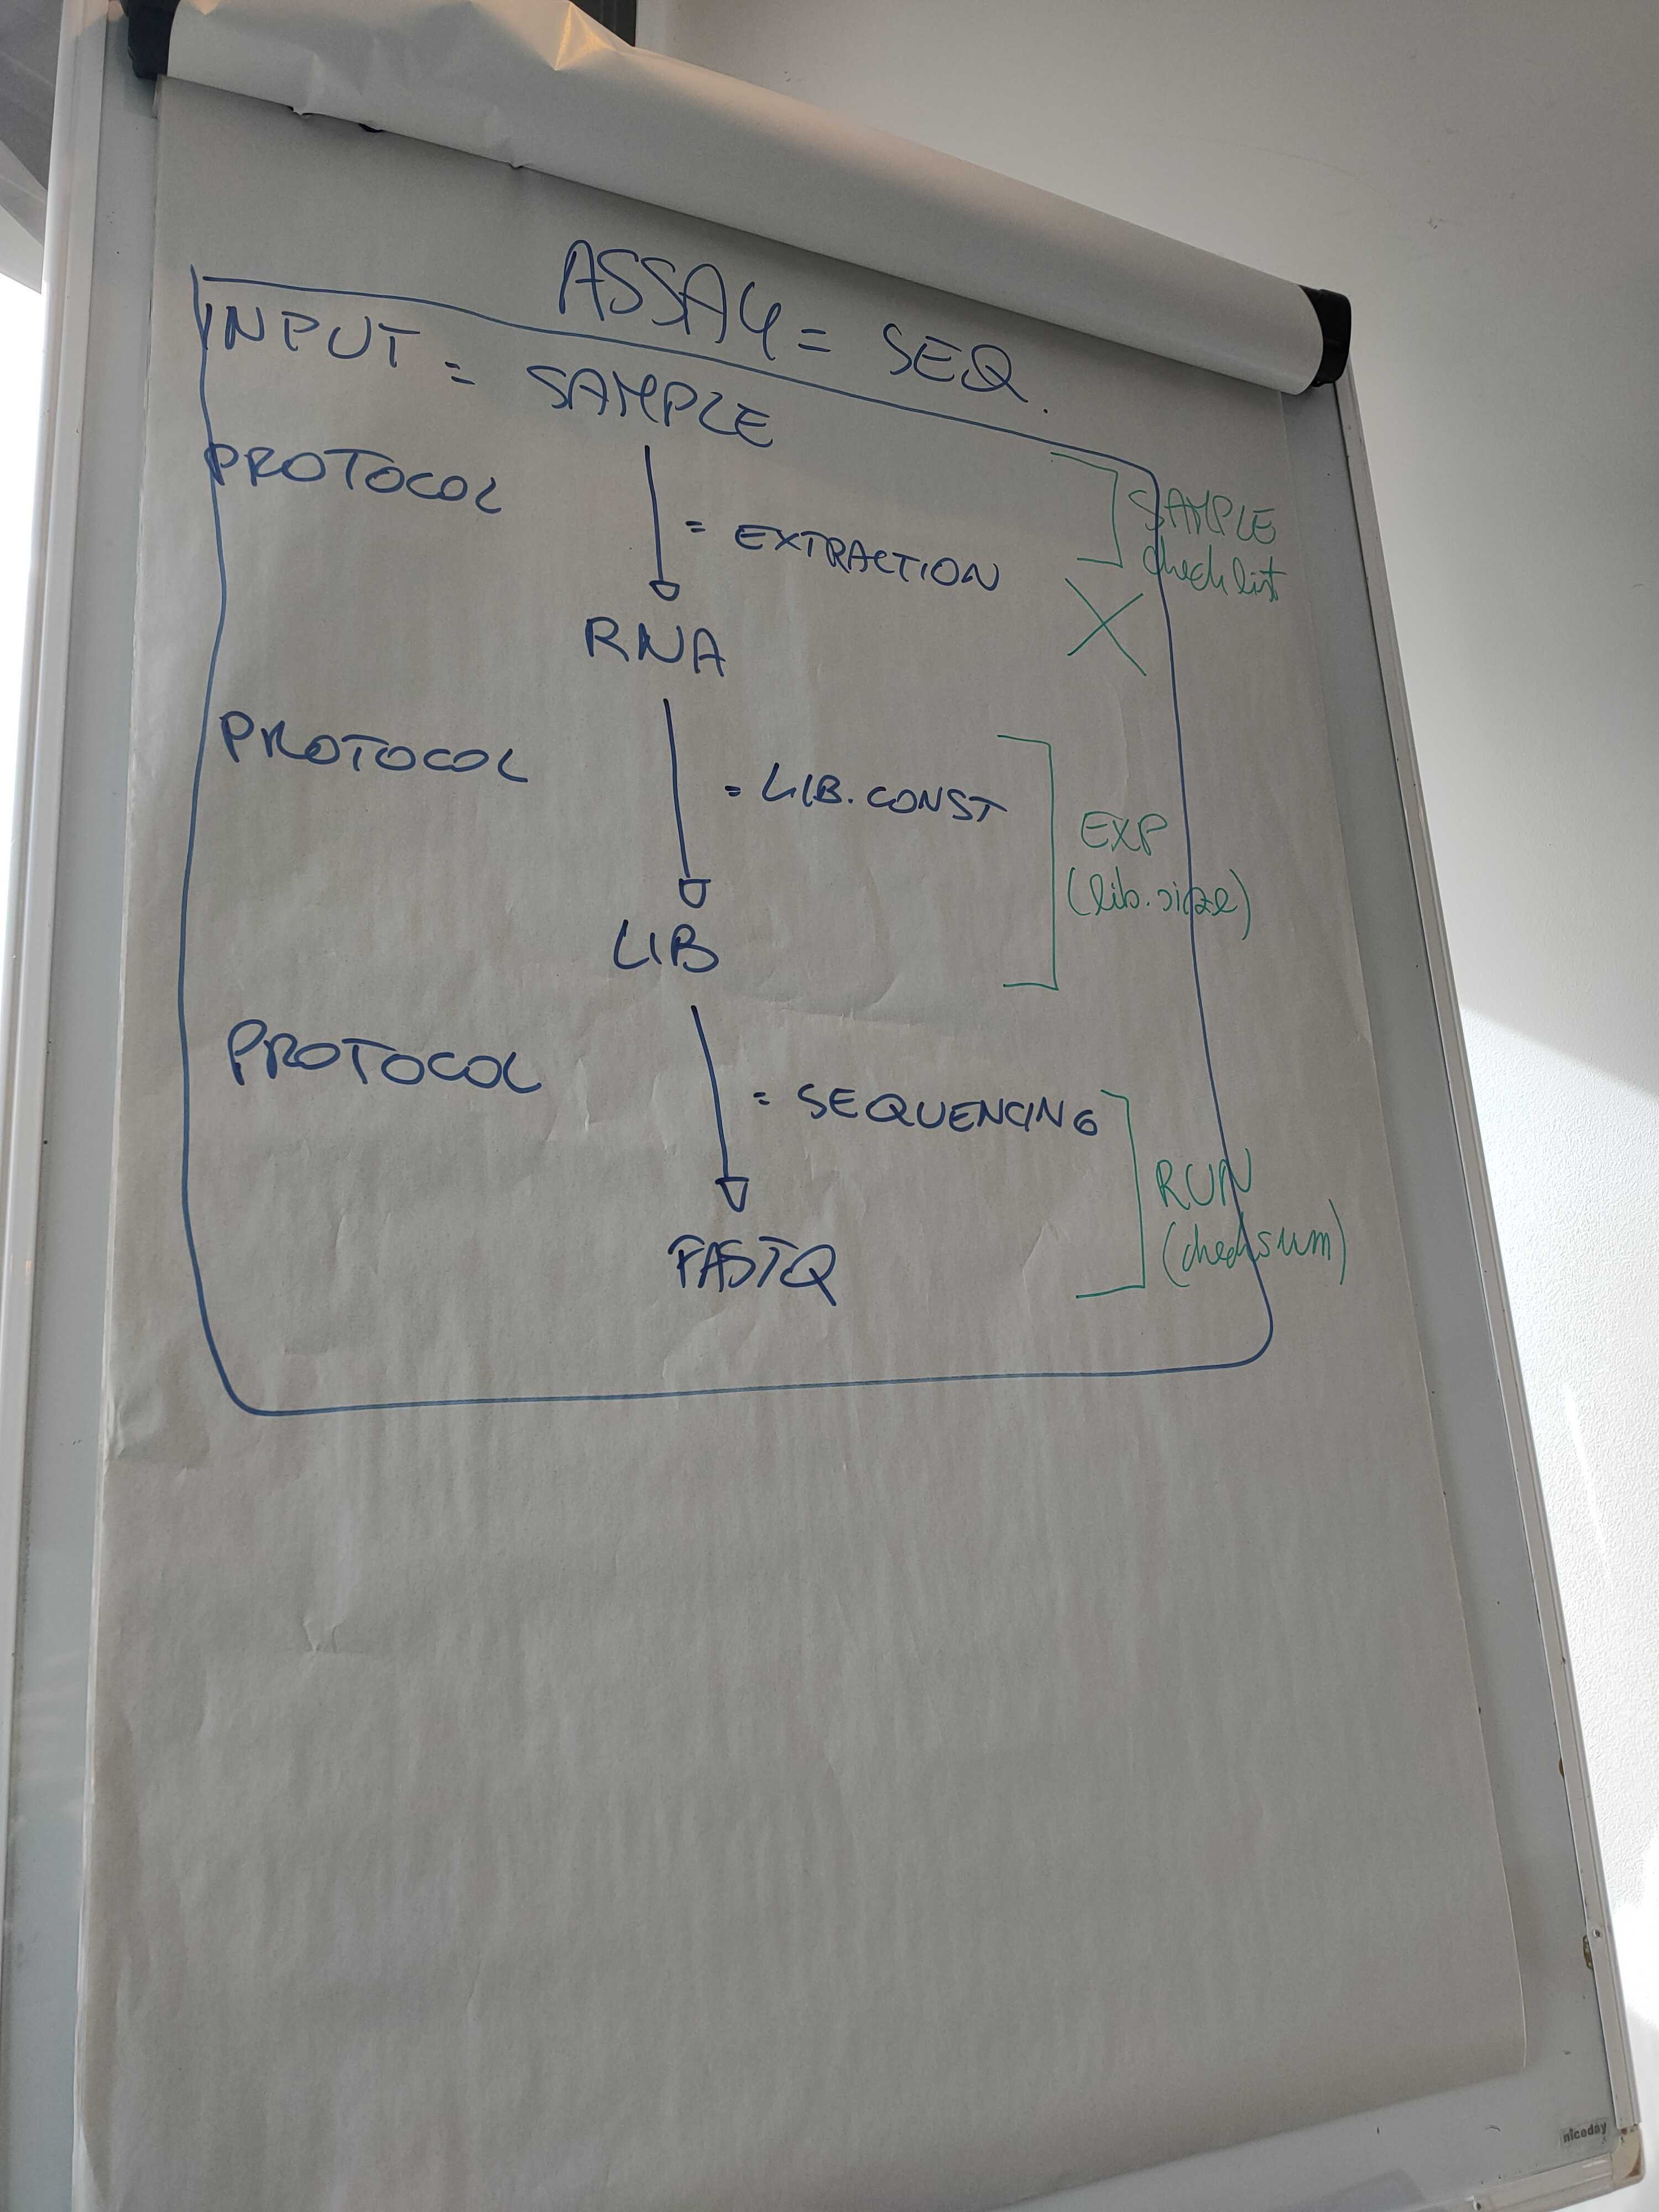 ASSAY = SEQ.
INPUT = SAMPLE
PROTOCOL
= EXTRACTION
SAMPLE
checklist
X
RNA
PROTOCOL
= LIB. CONST
EXP
(lib. size)
LIB
PROTOCOL
= SEQUENCING
RUN
(checksum)
FASTQ
niceday